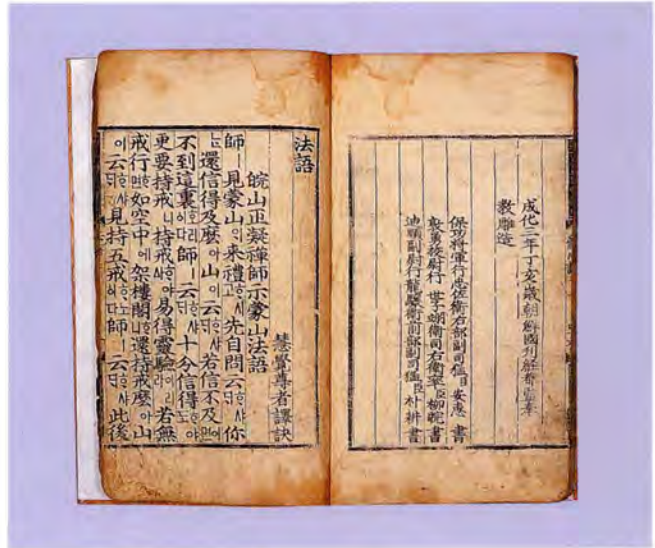 成化三年丁亥歲朝鮮國刊經都監奉
敎雕造
保功將軍行忠佐衛右部副司猛臣安惠書
敦勇校尉行世子翊衛司右衛率臣柳睆書
迪順副尉行龍驤衛前部副司猛臣朴耕書
法語
皖山正凝禪師示蒙山法語
慧覺尊者譯訣
師ㅣ見蒙山의來禮ᄒᆞ시고先自問云ᄒᆞ샤ᄃᆡ你
ᄂᆞᆫ還信得及麽아山이云ᄒᆞ샤ᄃᆡ若信不及이면
不到這裏호리이다師ㅣ云ᄒᆞ샤ᄃᆡ十分信得ᄒᆞ야도
更要持戒니持戒ᄒᆞ야ᅀᅡ易得靈驗이리라若無
戒行ᄒᆞ면如空中에架樓閣ᄒᆞ니還持戒麽아山
이云ᄒᆞ샤ᄃᆡ見持五戒ᄒᆞ노이다師ㅣ云ᄒᆞ샤ᄃᆡ此後